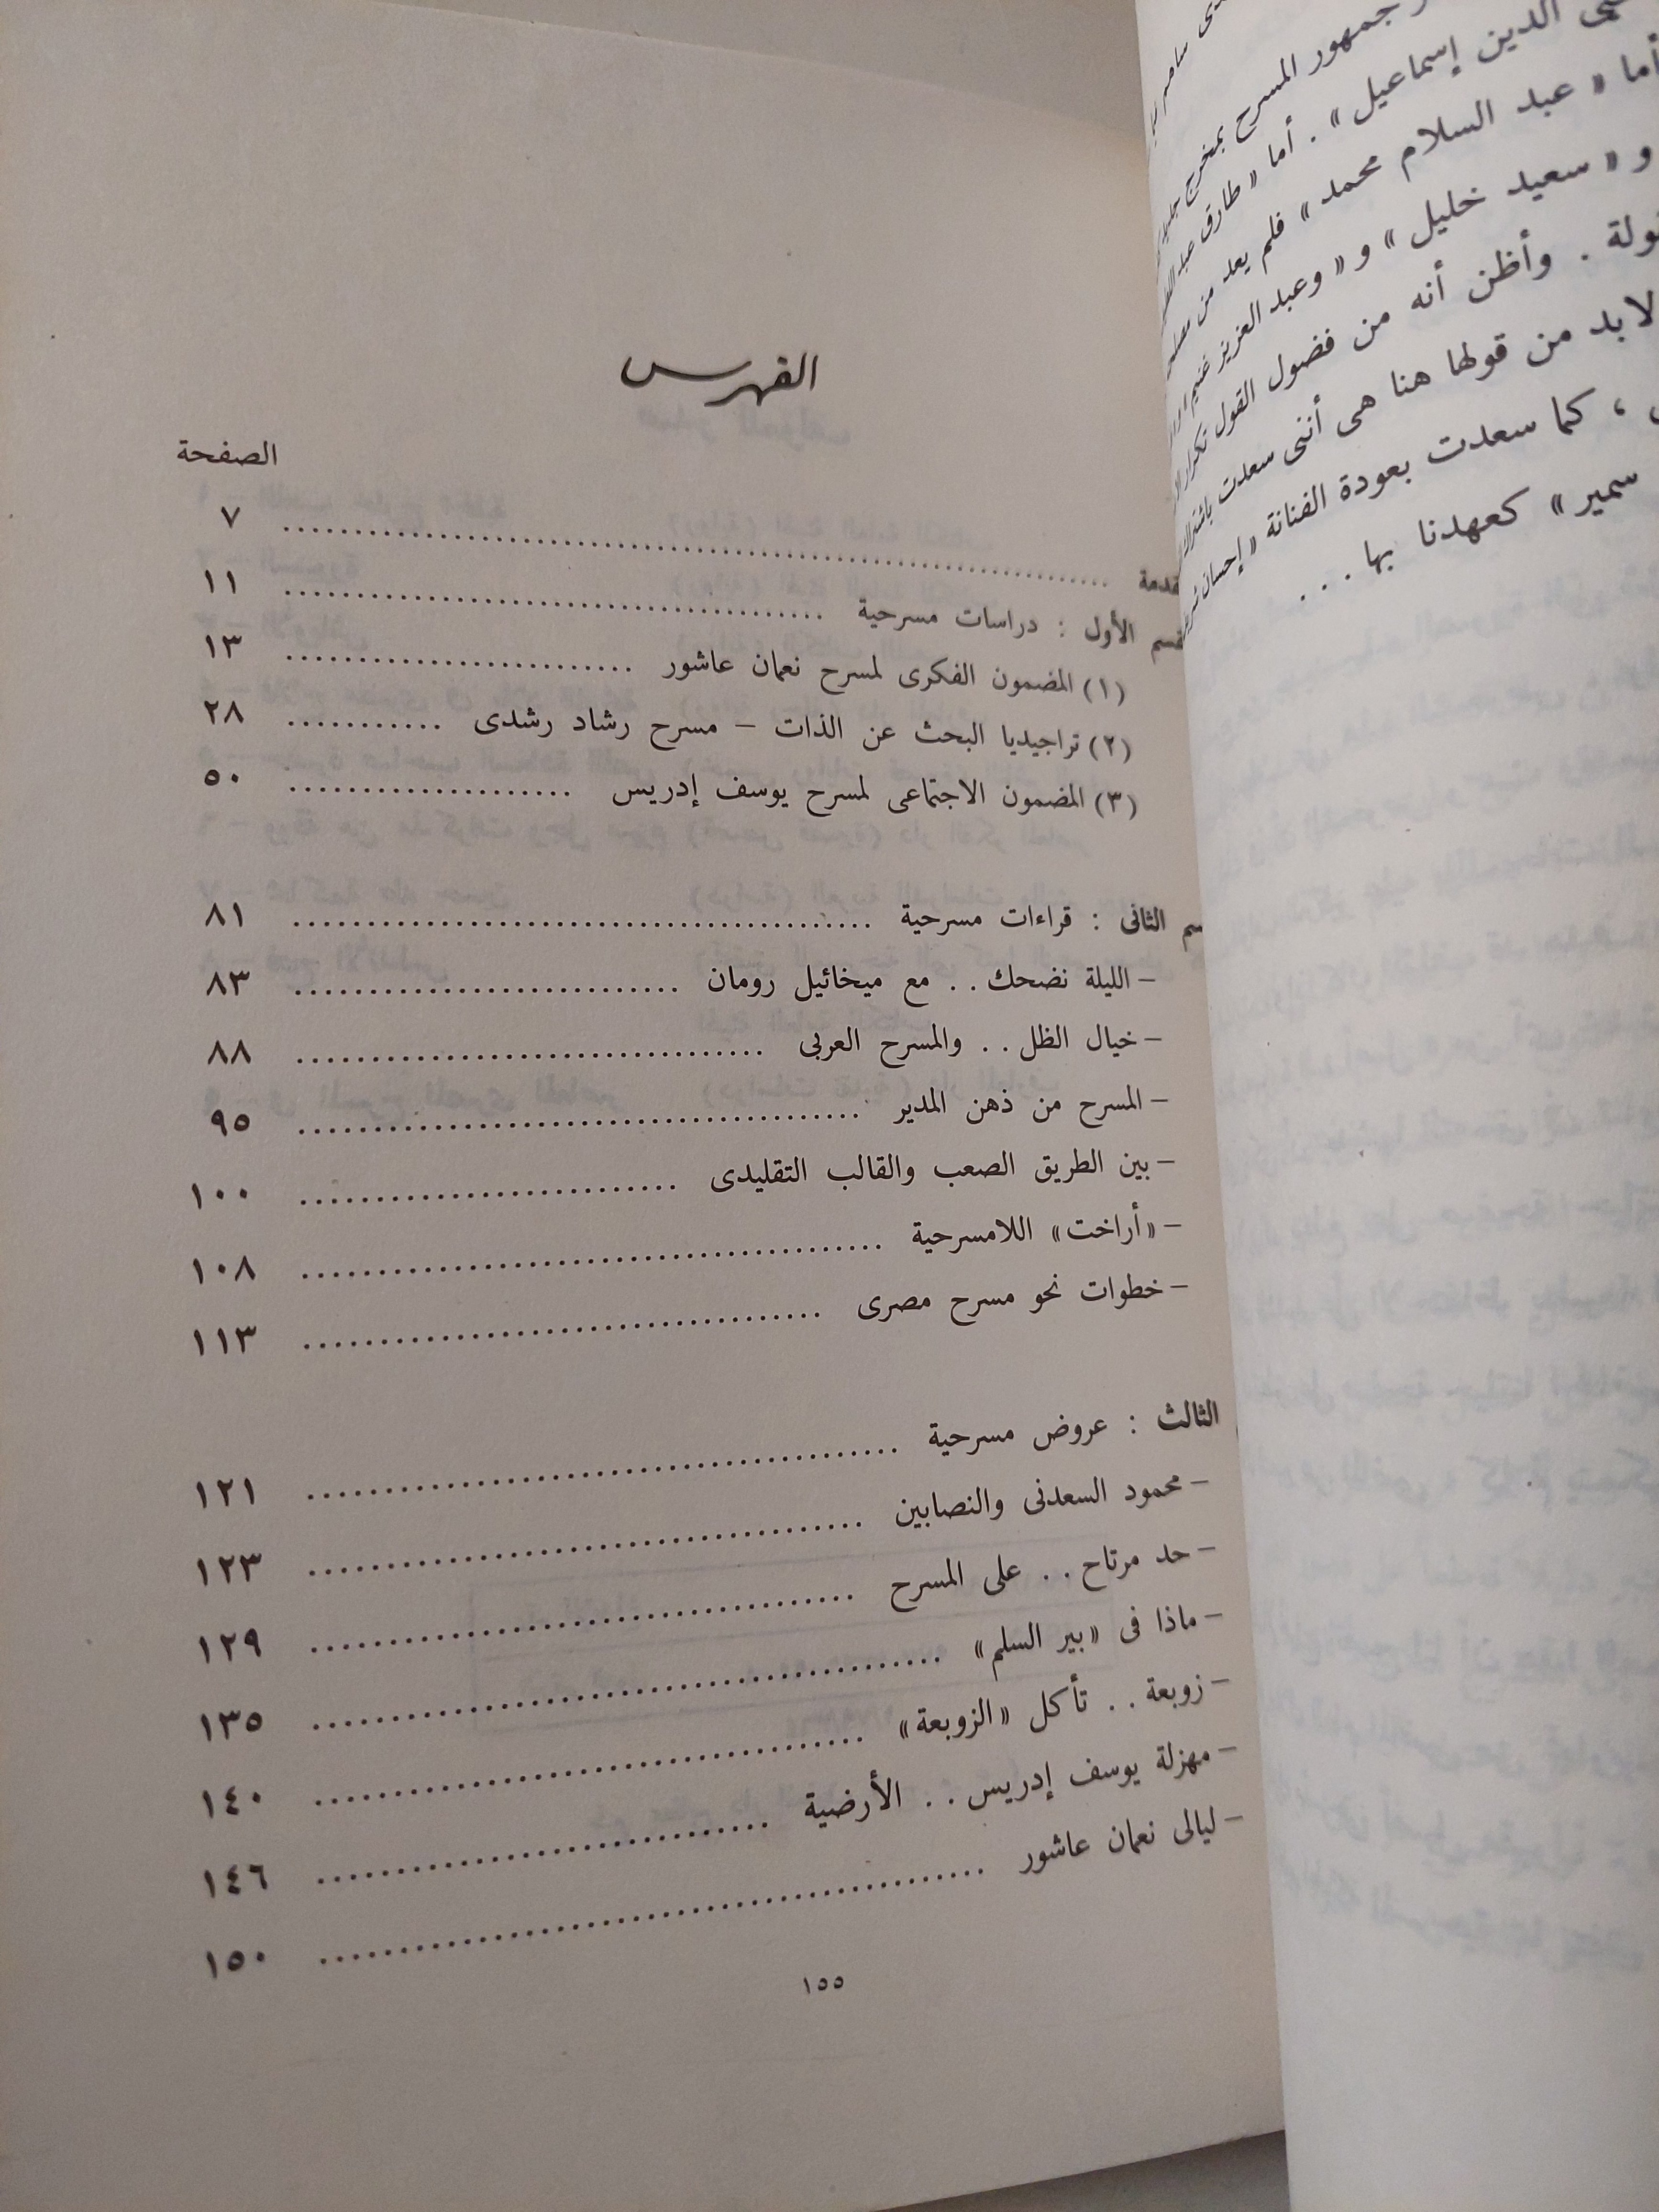 جمهور المسرح بمخرج
الدين إسماعيل» . أما «طارق
أما «عبد السلام محمد» فلم يعد من
و «سعيد خليل» و «وعبد العزيز غنيم
وأظن أنه من فضول القول تكرار
لابد من قولها هنا هى أننى سعدت
، كما سعدت بعودة الفنانة «إحسان
سمير» كعهدنا بها . . .
الفهرس
الصفحة
قدمة ........ ٧
قسم الأول : دراسات مسرحية ........ ١١
(١) المضمون الفكرى لمسرح نعمان عاشور ........ ١٣
(٢) تراجيديا البحث عن الذات – مسرح رشاد رشدى ........ ٢٨
(٣) المضمون الاجتماعى لمسرح يوسف إدريس ........ ٥٠
سم الثانى : قراءات مسرحية ........ ٨١
– الليلة نضحك . . مع ميخائيل رومان ........ ٨٣
– خيال الظل . . والمسرح العربى ........ ٨٨
– المسرح من ذهن المدير ........ ٩٥
– بين الطريق الصعب والقالب التقليدى ........ ١٠٠
– «أراخت» اللامسرحية ........ ١٠٨
– خطوات نحو مسرح مصرى ........ ١١٣
الثالث : عروض مسرحية ........ ١٢١
– محمود السعدنى والنصابين ........ ١٢٣
– حد مرتاح . . على المسرح ........ ١٢٩
– ماذا فى «بير السلم» ........ ١٣٥
– زوبعة . . تأكل «الزوبعة» ........ ١٤٠
– مهزلة يوسف إدريس . . الأرضية ........ ١٤٦
– ليالى نعمان عاشور ........ ١٥٠
١٥٥